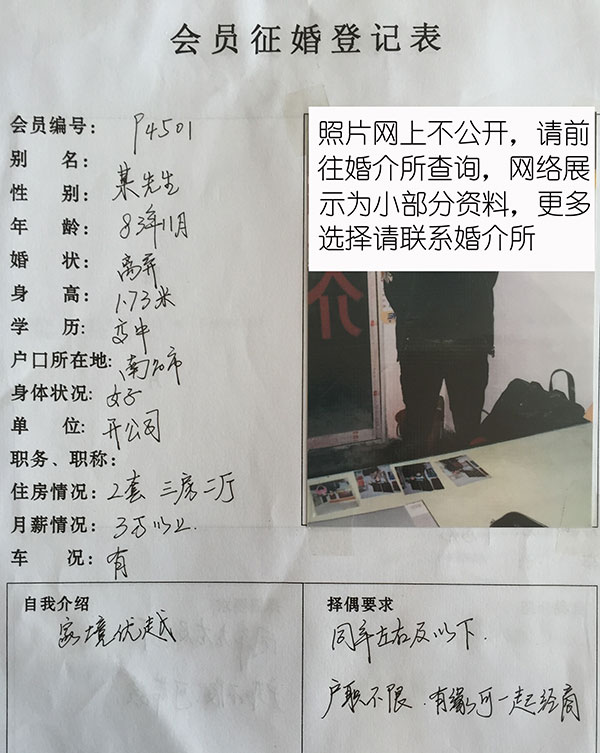 会员征婚登记表
会员编号: P4501
别 名: 某先生
性 别:
年 龄: 83年11月
婚 状: 离异
身 高: 1.73米
学 历: 高中
户口所在地: 南宁市
身体状况: 好
单 位: 开公司
职务、职称:
住房情况: 2套 三房二厅
月薪情况: 3万以上.
车 况: 有
照片网上不公开，请前
往婚介所查询，网络展
示为小部分资料，更多
选择请联系婚介所
介
自我介绍
家境优越
择偶要求
同年左右及以下.
户职不限.有缘可一起经商